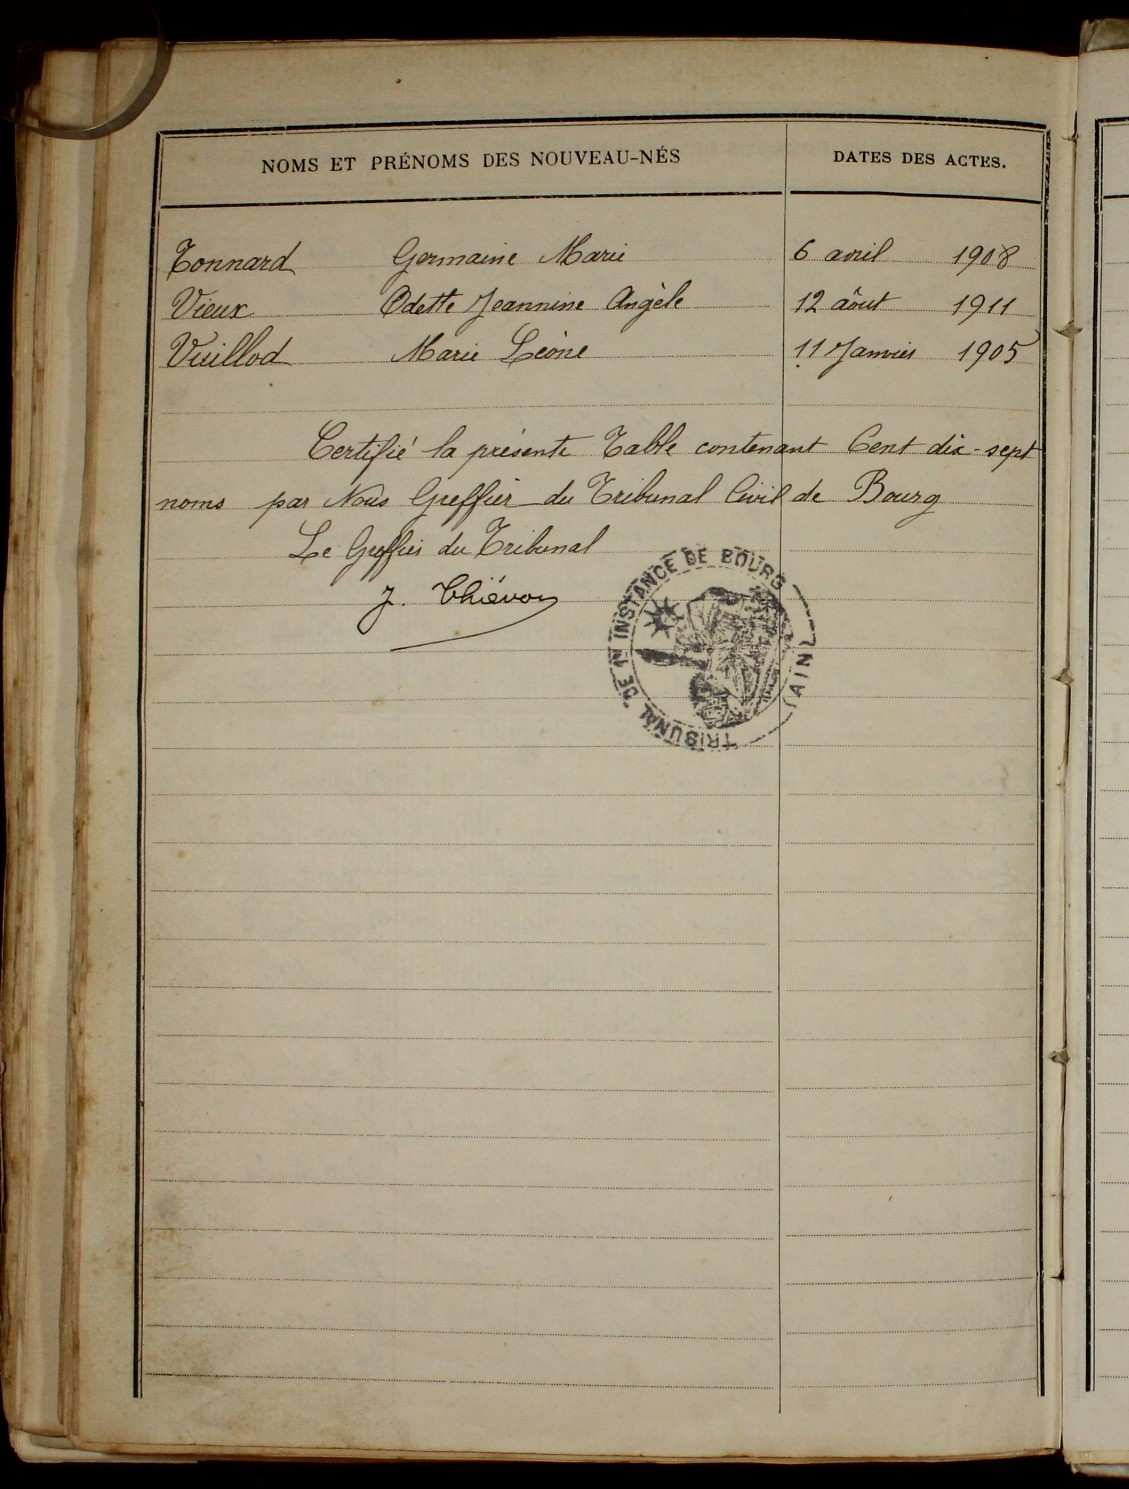 NOMS ET PRÉNOMS DES NOUVEAU-NÉS DATES DES ACTES.
Tonnard Germaine Marie 6 avril 1908
Vieux Odette Jeannine Angèle 12 âout 1911
Vuillod Marie Léone 11 Janvier 1905
Certifié la présente Table contenant Cent dix-sept
noms par Nous Greffier du Tribunal Civil de Bourg
Le Greffier du Tribunal
J. Thiévon
TRIBUNAL DE 1re INSTANCE DE BOURG (AIN)